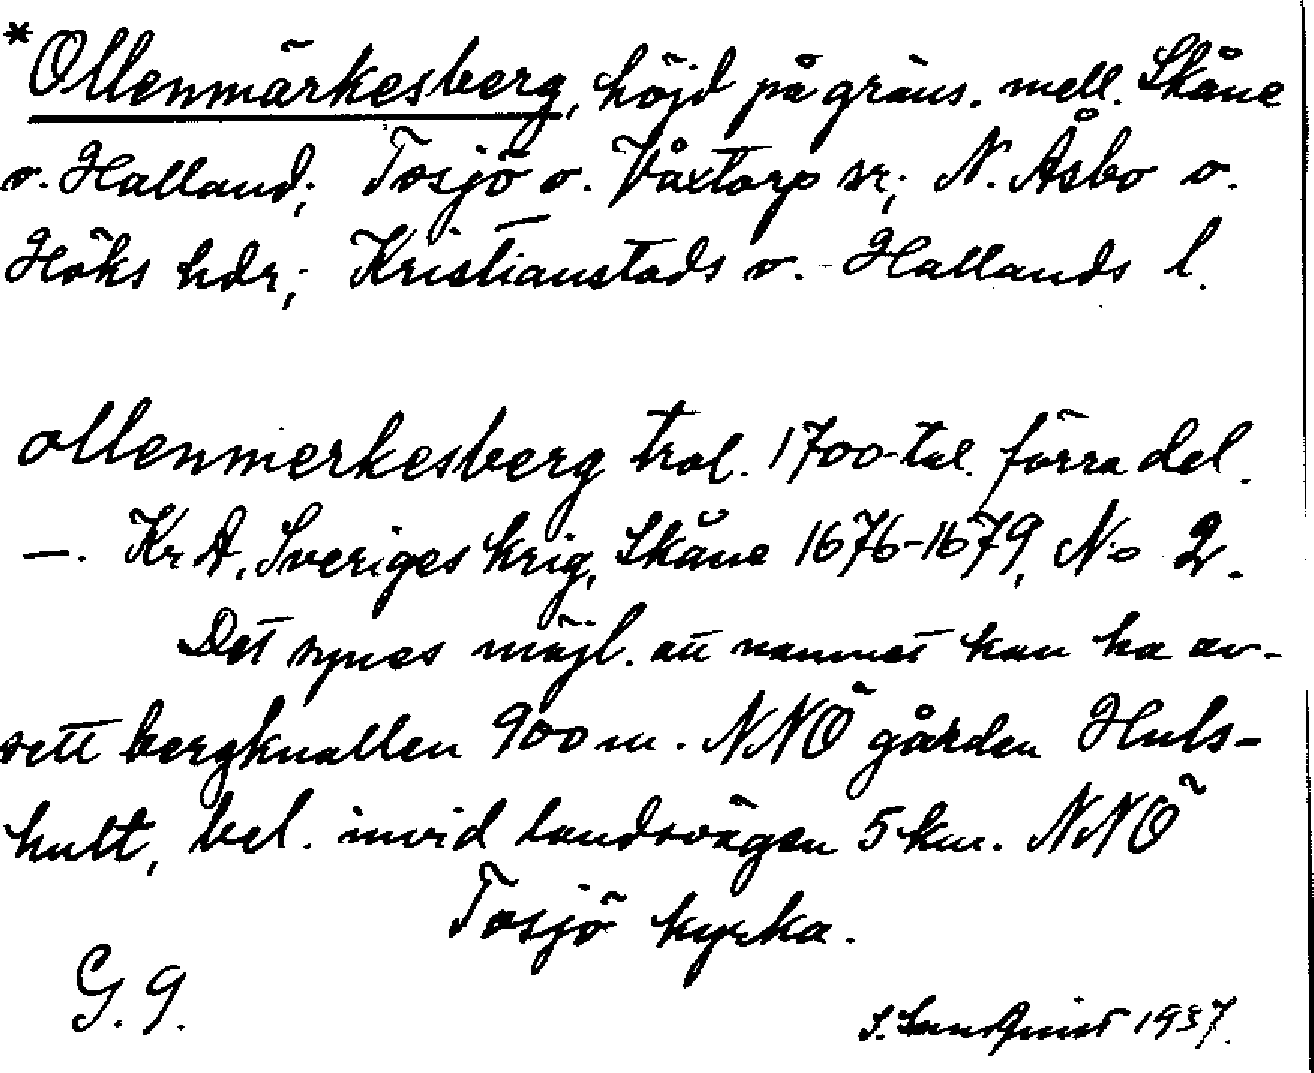 *Ollenmärkesberg, höjd på gräns. mell. Skåne
o. Halland; Tosjö o. Våxtorp sr; N. Åsbo o.
Höks hdr; Kristianstads o. Hallands l.
ollenmerkesberg trol. 1700-tal. förra del.
—. KrA. Sveriges krig, Skåne 1676-1679, No 2.
Det synes möjl. att namnet kan ha av-
sett bergknallen 900 m. NNÖ gården Huls-
hult, bel. invid landsvägen 5 km. NNÖ
Tosjö kyrka.
G. 9.
S. Sundquist 1937.